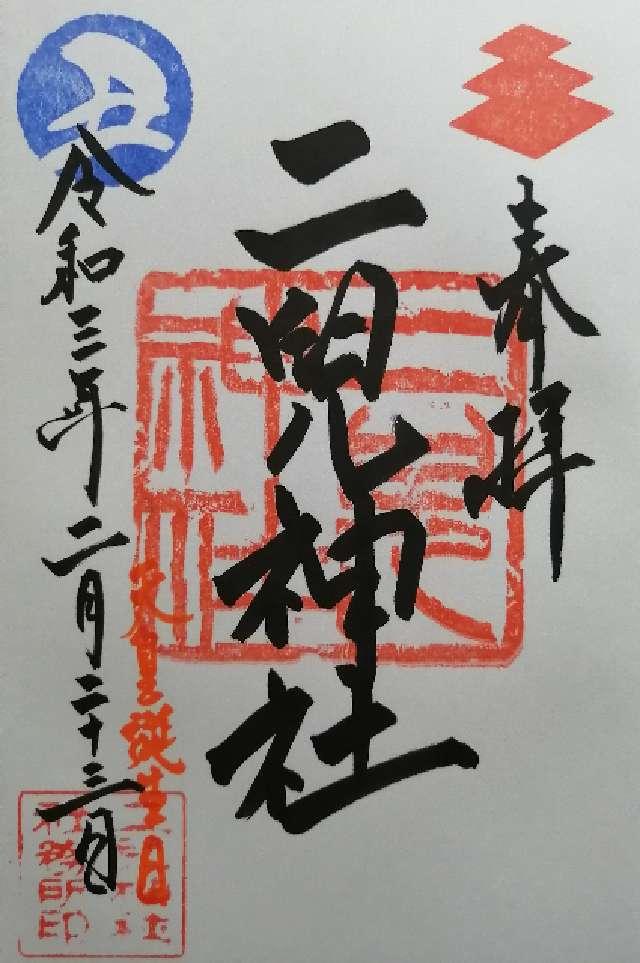 奉拝
二兒神社
天皇誕生日
令和三年二月二十三日
丑
社務所印